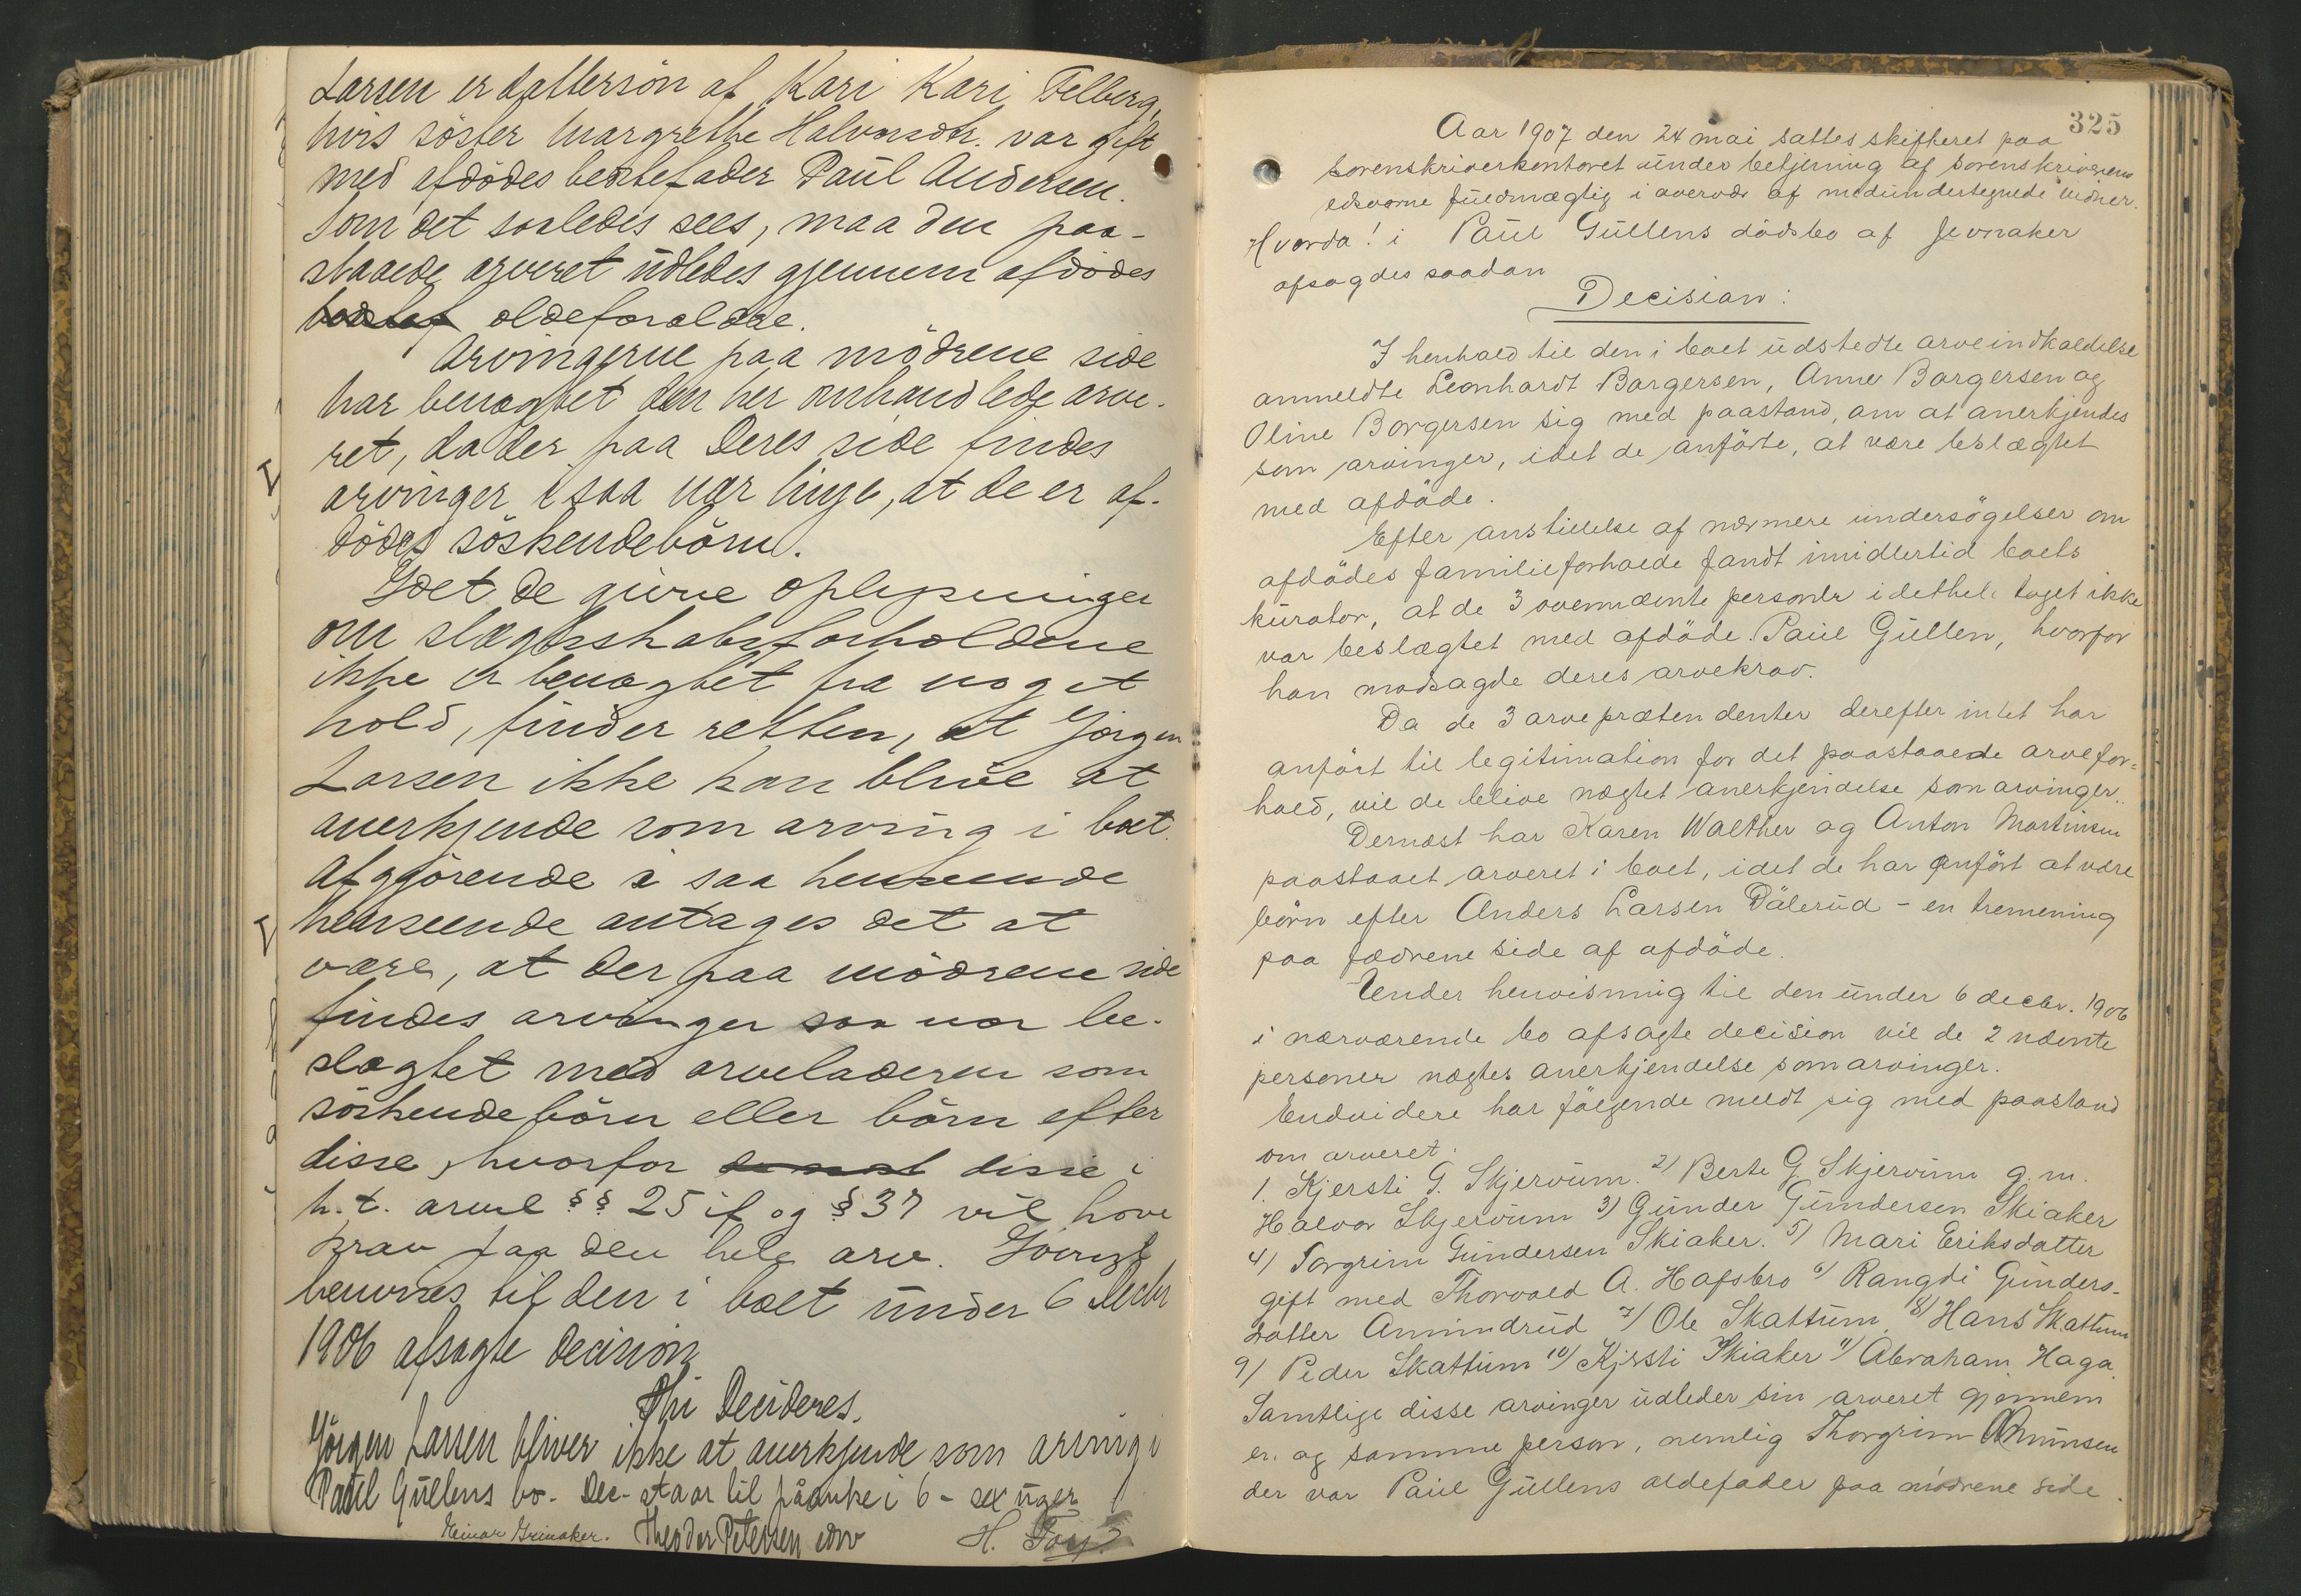 Larsen er dattersön af Kari Kari Felberg,
hvis söster Margrethe Halvorsdtr. var gift
med afdödes bedstefader Paul Andersen.
Som det saaledes sees, maa den paa-
staaede arveret udledes gjennem afdödes
oldeforældre.
Arvingerne paa mödrene side
har benægtet den her omhandlede arve-
ret, da der paa deres side findes
arvinger i saa nær linje, at de er af-
dödes söskendebörn.
Idet de givne oplysninger
om slægtsskabsforholdene
ikke er benægtet fra noget
hold, finder retten, at Jörgen
Larsen ikke kan blive at
anerkjende som arving i boet.
Afgjörende i saa henseende
henseende antages det at
være, at der paa mödrene side
findes arvinger saa nær be-
slægtet med arveladeren som
söskendebörn eller börn efter
disse, hvorfor disse i
h.t. arvel §§ 25 if og § 37 vil have
krav paa den hele arv. Iövrigt
henvises til den i boet under 6 decbr
1906 afsagte decision
Thi Decideres.
Jörgen Larsen bliver ikke at anerkjende som arving i
Paul Gullens bo. Dec. staar til påanke i 6 - sex uger
Einar Grinaker. Theodor Petersen H.
325
Aar 1907 den 24 mai sattes skifteret paa
sorenskriverkontoret under betjening af sorenskriverens
edsvorne fuldmægtig i overvær af medundertegnede vidner.
Hvorda! i Paul Gullens dödsbo af Jevnaker
afsagdes saadan
Decision:
I henhold til den i boet udstedte arveindkaldelse
anmeldte Leonhardt Borgersen, Anne Borgersen og
Oline Borgersen sig med paastand, om at anerkjendes
som arvinger, idet de anförte, at være beslægtet
med afdöde.
Efter anstillelse af nærmere undersögelser om
afdödes familieforholde fandt imidlertid boets
kurator, at de 3 ovennævnte personer idethele taget ikke
var beslægtet med afdöde Paul Gullen, hvorfor
han modsagde deres arvekrav.
Da de 3 arveprætendenter derefter intet har
anfört til legitimation for det paastaaede arvefor=
hold, vil de blive nægtet anerkjendelse som arvinger.
Dernæst har Karen Walther og Anton Martinsen
paastaaet arveret i boet, idet de har anfört at være
börn efter Anders Larsen Dälerud - en tremening
paa fædrene side af afdöde.
Under henvisning til den under 6 decbr. 1906
i nærværende bo afsagte decision vil de 2 nævnte
personer nægtes anerkjendelse som arvinger.
Endvidere har fölgende meldt sig med paastand
om arveret:
1. Kjersti G. Skjervum. 2) Berte G Skjervum g. m.
Halvor Skjervum 3) Gunder Gundersen Skiaker
4) Torgrim Gundersen Skiaker. 5) Mari Eriksdatter
gift med Thorvald A. Hafsbro 6) Rangdi Gunders-
datter Amundrud 7) Ole Skattum, 8) Hans Skattum
9) Peder Skattum 10) Kjersti Skiaker 11) Abraham Haga.
Samtlige disse arvinger udleder sin arveret gjennem
en og samme person, nemlig Thorgrim
der var Paul Gullens oldefader paa mödrene side.